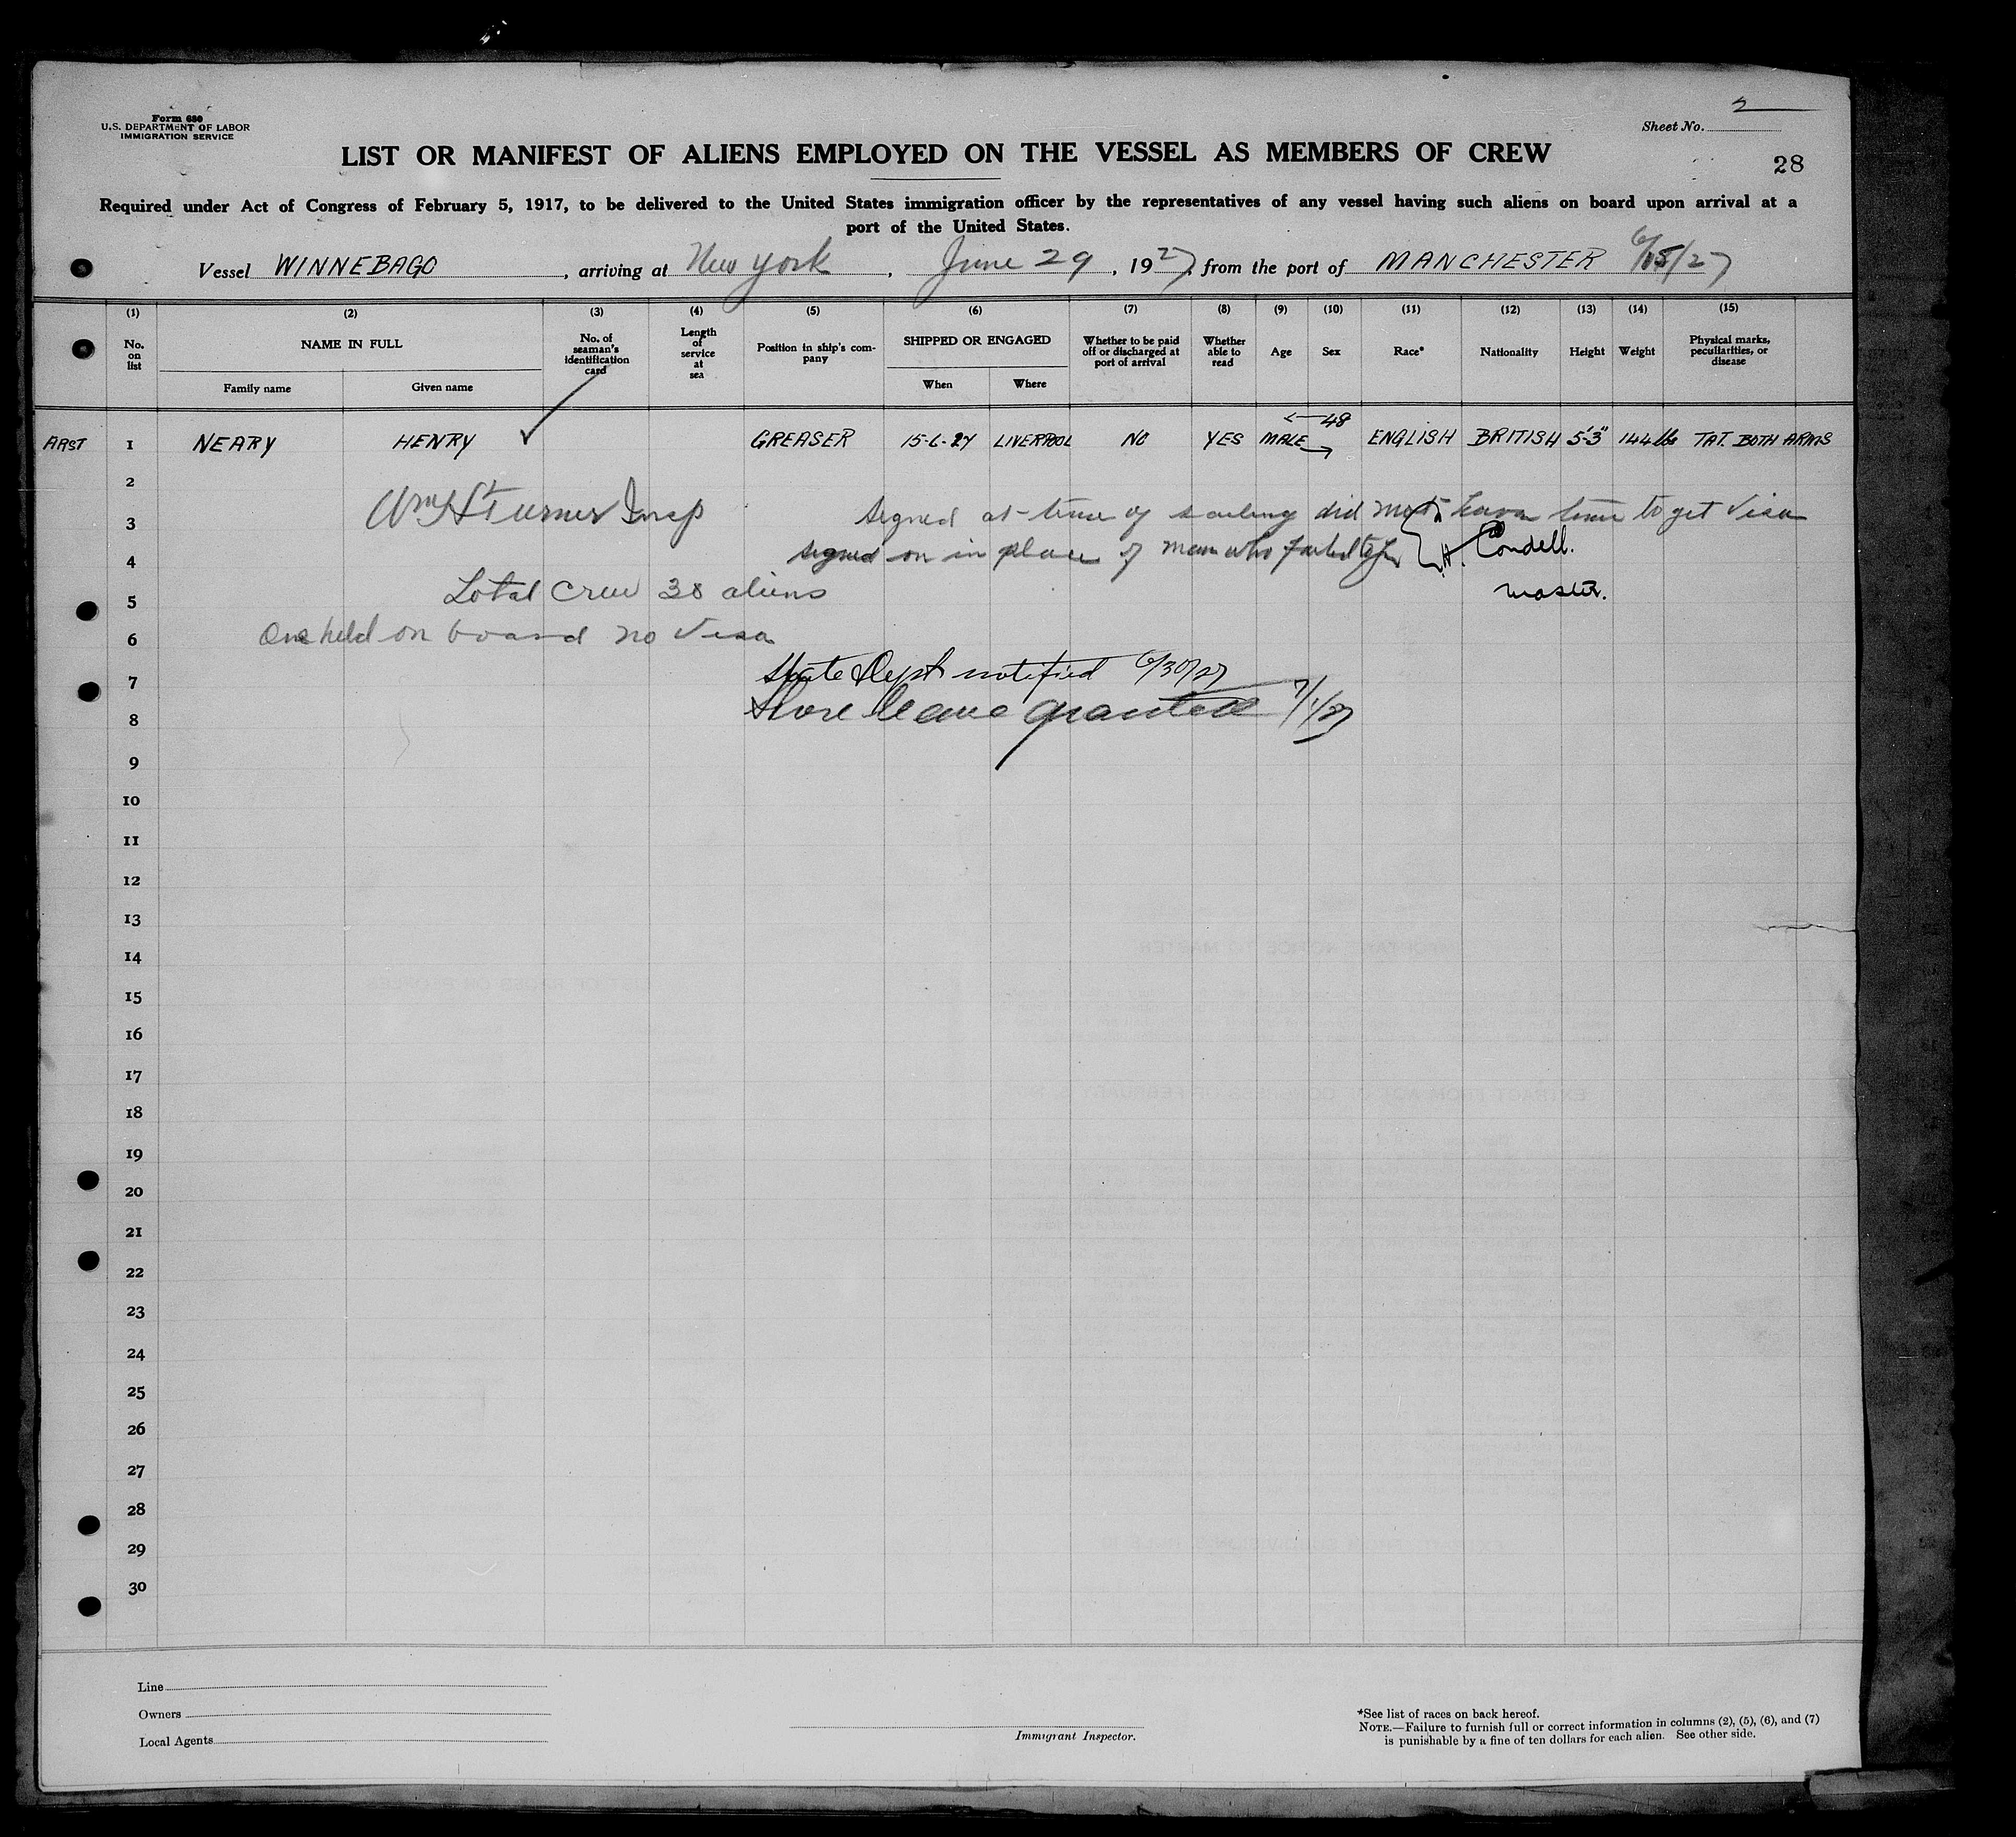 Form 680
U.S. DEPARTMENT OF LABOR
IMMIGRATION SERVICE
Sheet No. 2
LIST OR MANIFEST OF ALIENS EMPLOYED ON THE VESSEL AS MEMBERS OF CREW
28
Required under Act of Congress of February 5, 1917, to be delivered to the United States immigration officer by the representatives of any vessel having such aliens on board upon arrival at a
port of the United States.
Vessel WINNEBAGO, arriving at New York, June 29, 1927, from the port of MANCHESTER 6/15/27
(1) No. on list
(2) NAME IN FULL
Family name
Given name
(3) No. of seaman's identification card
(4) Length of service at sea
(5) Position in ship's company
(6) SHIPPED OR ENGAGED
When
Where
(7) Whether to be paid off or discharged at port of arrival
(8) Whether able to read
(9) Age
(10) Sex
(11) Race*
(12) Nationality
(13) Height
(14) Weight
(15) Physical marks, peculiarities, or disease
1 NEARY HENRY ✓ GREASER 15-6-27 LIVERPOOL NO YES MALE 48 ENGLISH BRITISH 5'3" 144 lbs TAT. BOTH ARMS
2
3 Insp signed at time of sailing did not have time to get Visa
signed on in place of man who failed to H. Condell.
4
Total Crew 38 aliens master.
5
6 One held on board no Visa
7 State Dept notified 6/30/27
8 Shore leave granted 7/1/27
9
10
11
12
13
14
15
16
17
18
19
20
21
22
23
24
25
26
27
28
29
30
Line
Owners
Local Agents
Immigrant Inspector.
*See list of races on back hereof.
NOTE.—Failure to furnish full or correct information in columns (2), (5), (6), and (7)
is punishable by a fine of ten dollars for each alien. See other side.